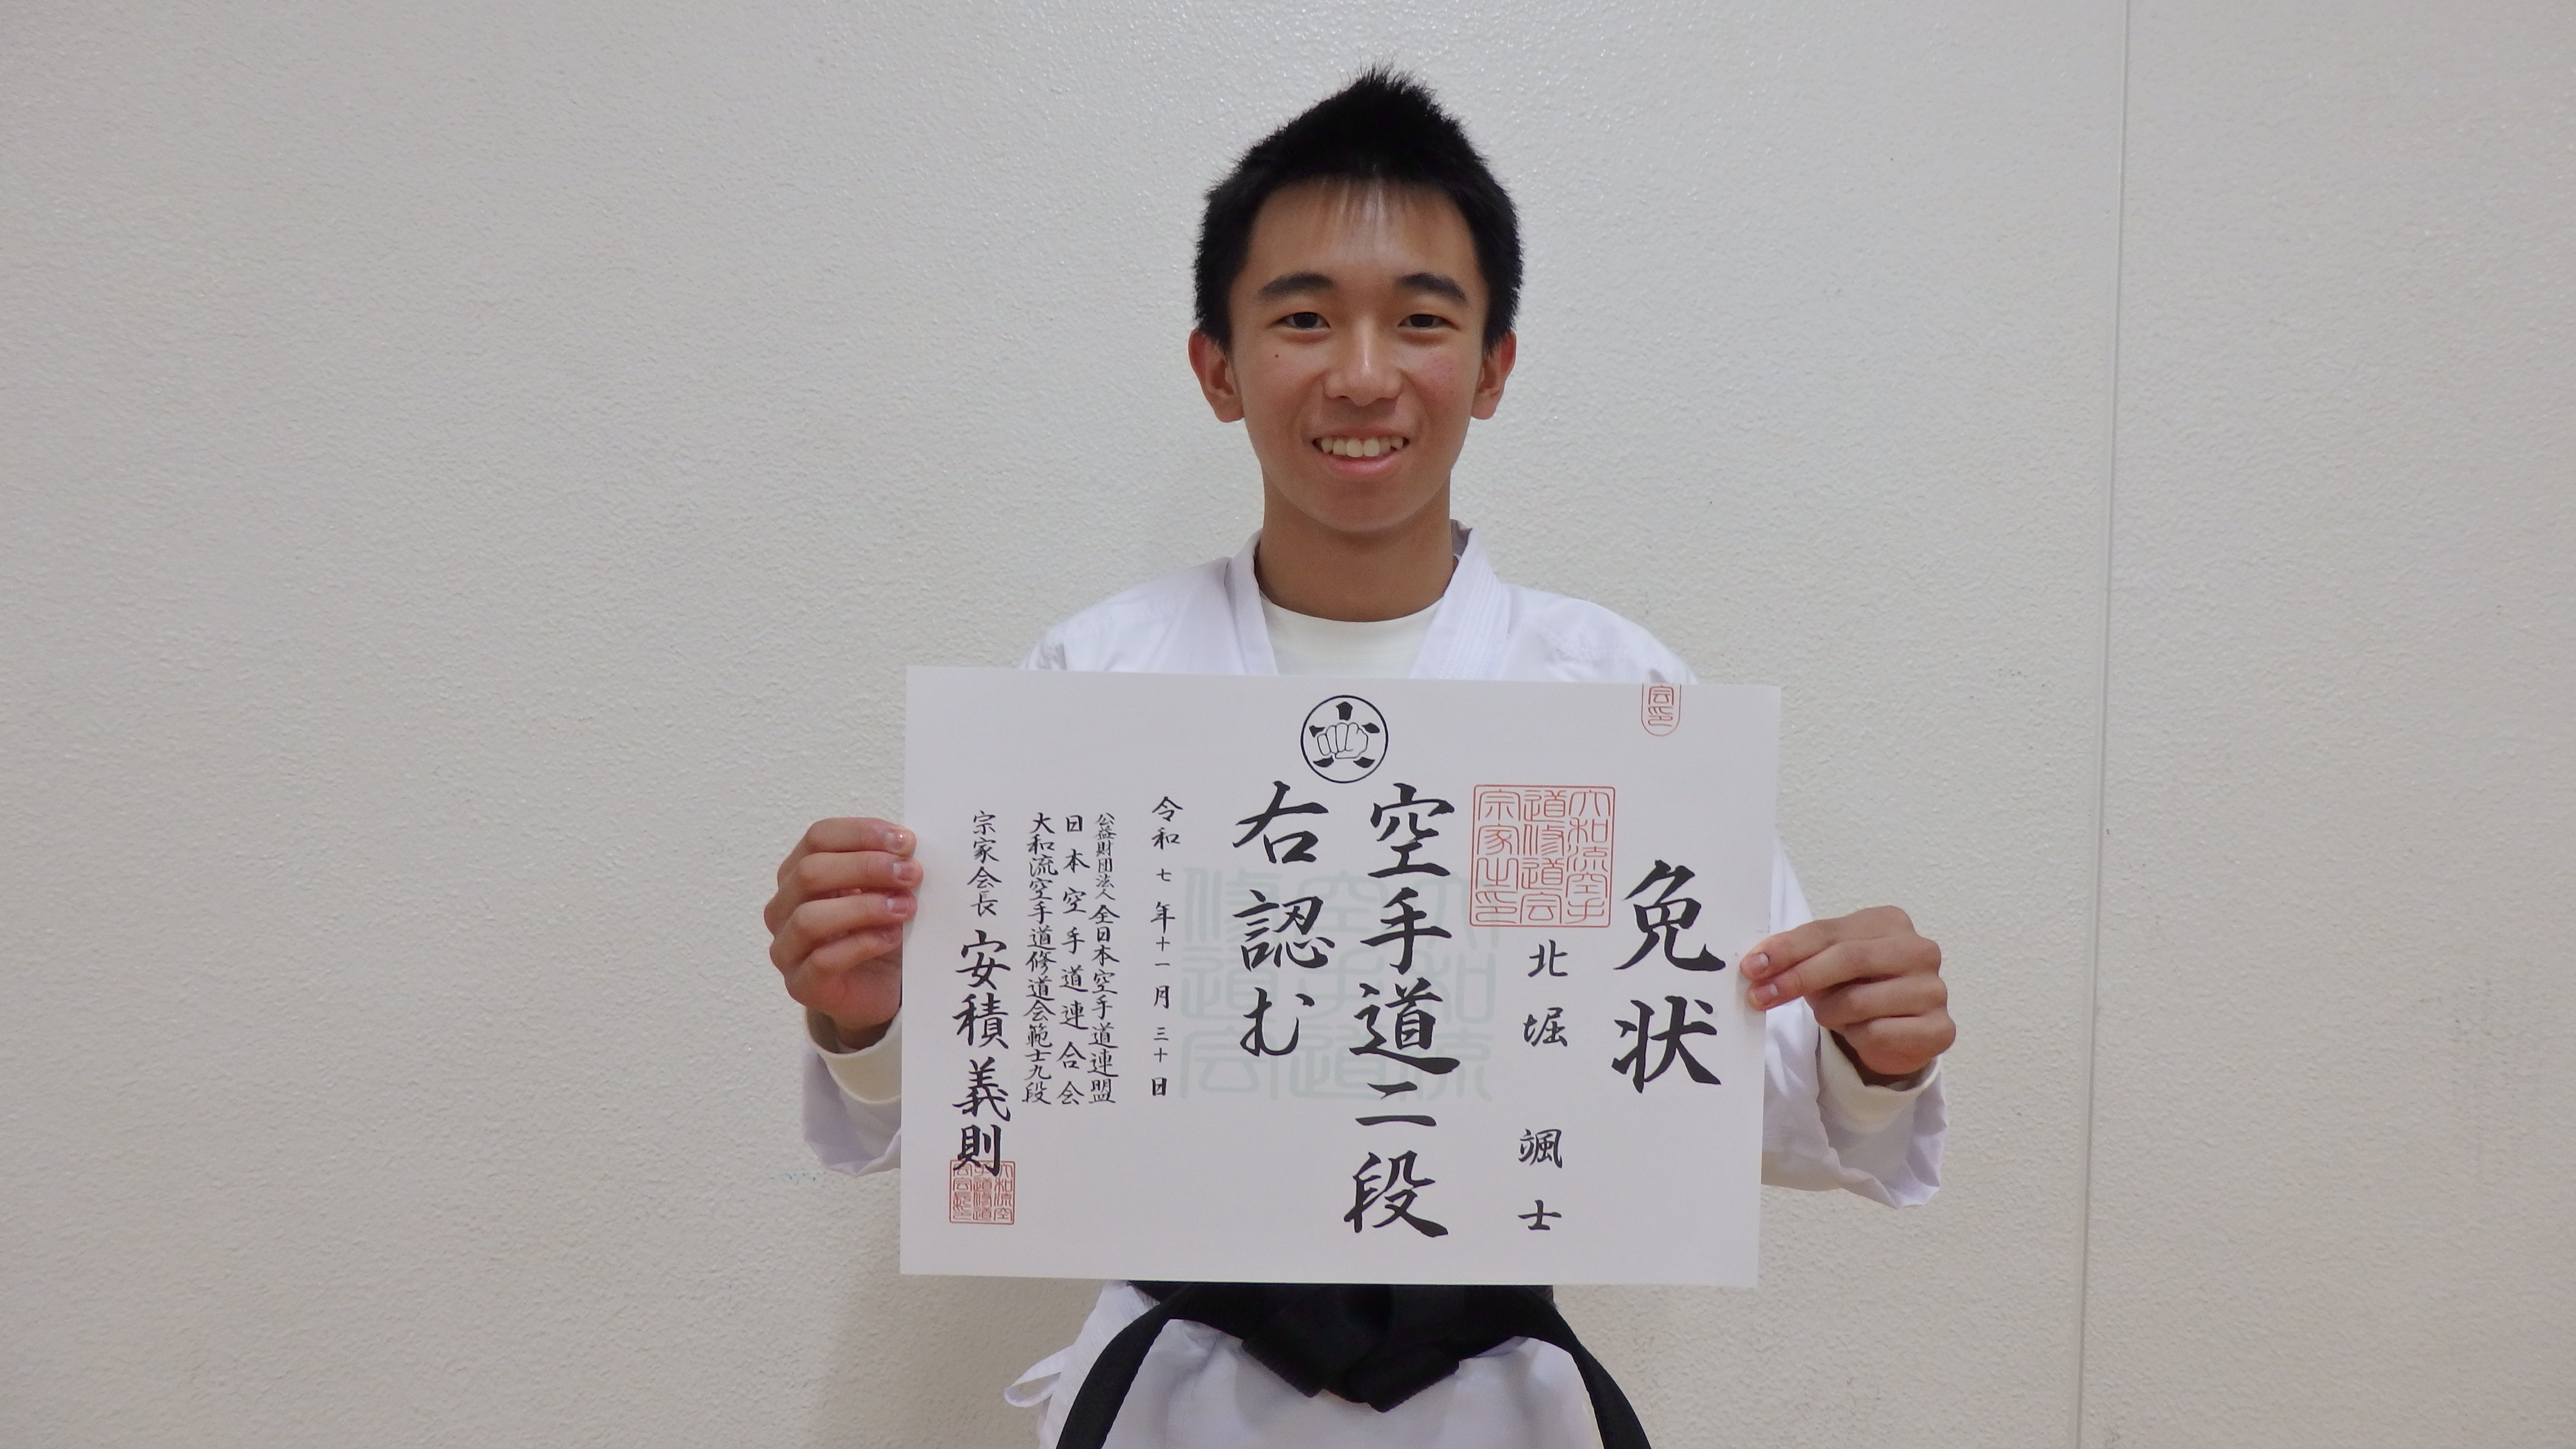 免状
北堀 颯士
空手道二段
右認む
令和七年十一月三十日
公益財団法人全日本空手道連盟
日本空手道連合会
大和流空手道修道会範士九段
宗家会長 安積義則
大和流空手道修道会宗家之印
大和流空手道修道会